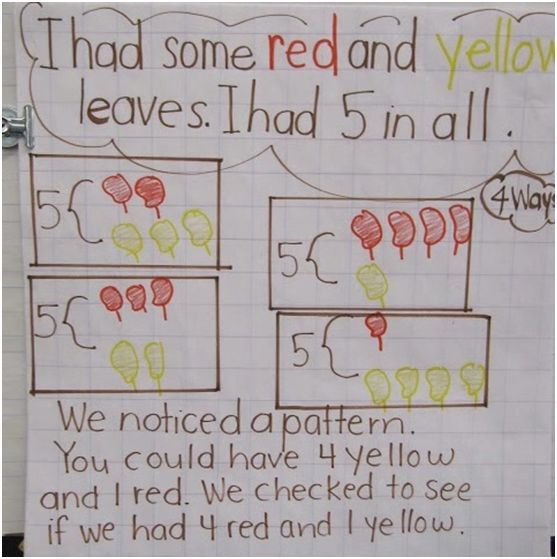 I had some red and yellow
leaves. I had 5 in all.
4 Ways
5
5
5
5
We noticed a pattern.
You could have 4 yellow
and 1 red. We checked to see
if we had 4 red and 1 yellow.